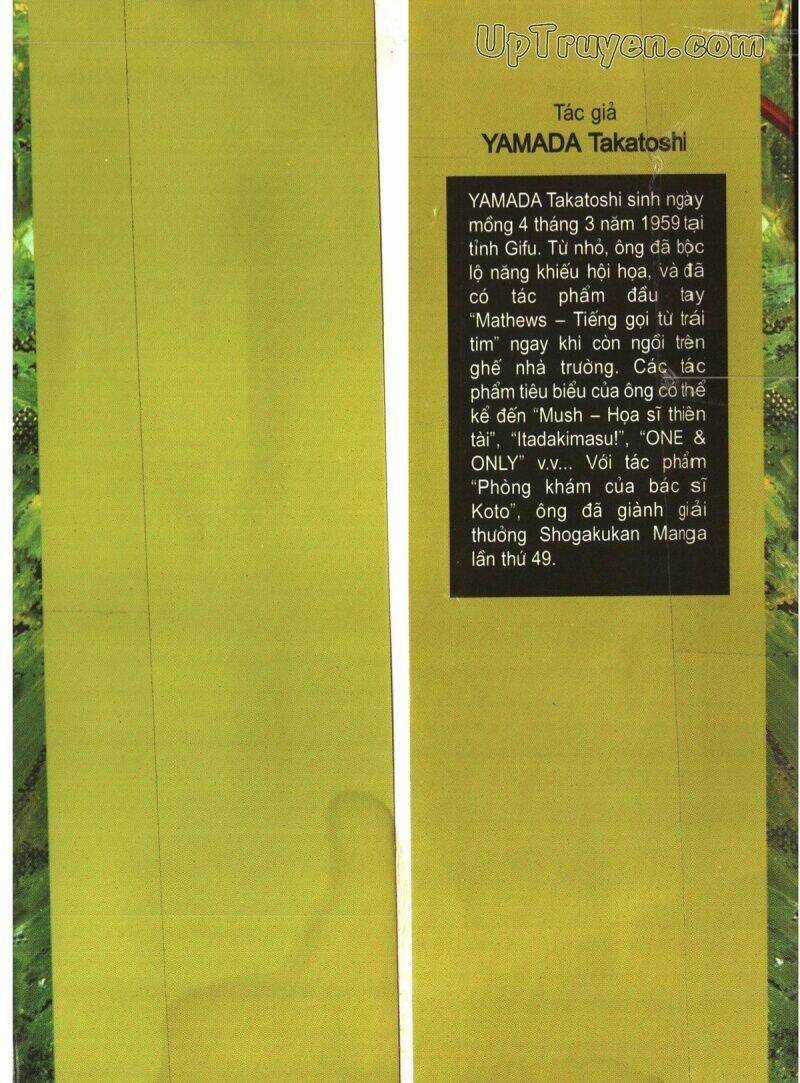 UpTruyen.com
Tác giả
YAMADA Takatoshi
YAMADA Takatoshi sinh ngày
mồng 4 tháng 3 năm 1959 tại
tỉnh Gifu. Từ nhỏ, ông đã bộc
lộ năng khiếu hội họa, và đã
có tác phẩm đầu tay
“Mathews – Tiếng gọi từ trái
tim” ngay khi còn ngồi trên
ghế nhà trường. Các tác
phẩm tiêu biểu của ông có thể
kể đến “Mush – Họa sĩ thiên
tài”, “Itadakimasu!”, “ONE &
ONLY” v.v... Với tác phẩm
“Phòng khám của bác sĩ
Koto”, ông đã giành giải
thưởng Shogakukan Manga
lần thứ 49.